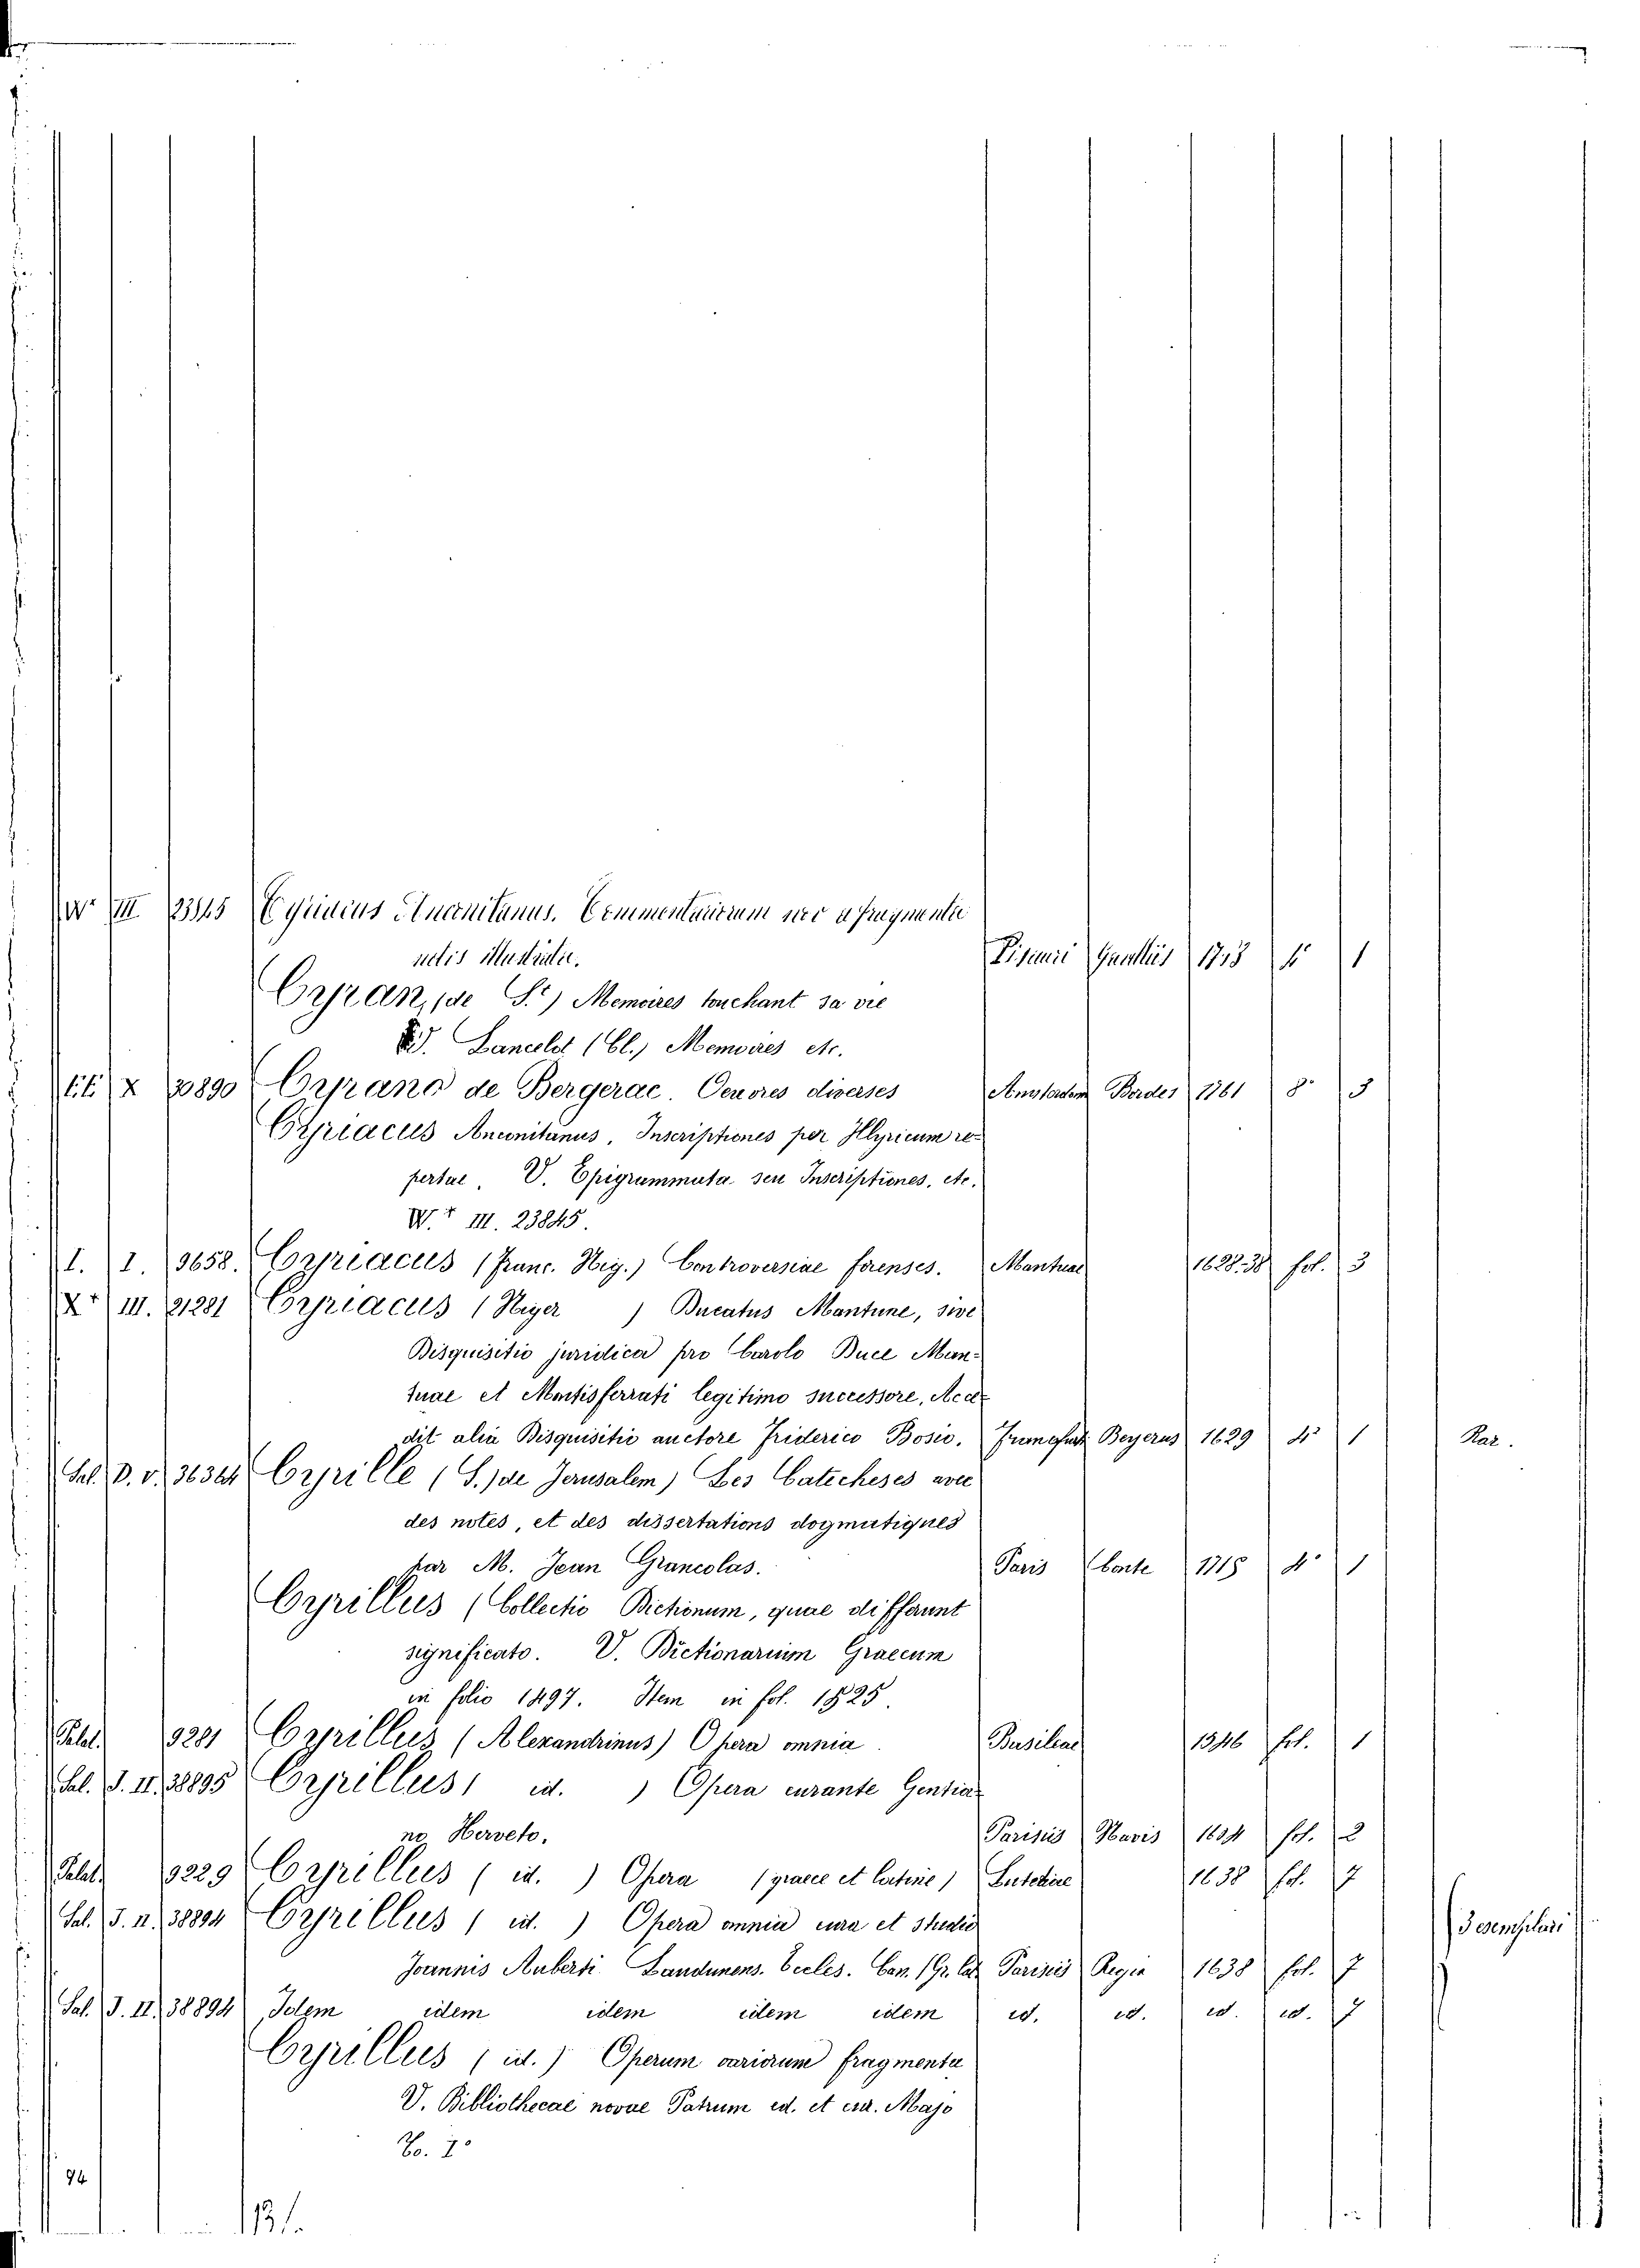 W.r III 23845 Cyriacus Anconitanus. Commentariorum nova fragmenta
notis illustrata. Pisauri Gavelliis 1763 4° 1
Cyran, (de S.t) Memoires touchant sa vie
V. Lancelot (Cl.) Memoires etc.
Lit. X 20890 Cyrano de Bergerac. Oeuvres diverses Amsterdam Bordes 1761 8° 3
Cyriacus Anconitanus, Inscriptiones per Illyricum re-
pertae, V. Epigrammata seu Inscriptiones, etc.
W.r III. 23845.
I. I. 9658. Cyriacus (Franc. Nig.) Controversiae forenses. Mantuae 1628.38 fol. 3
X.r III. 21281 Cyriacus (Niger ) Ducatus Mantuae, sive
Disquisitio juridica pro Carolo Duce Man-
tuae et Montisferrati legitimo successore, Acce-
dit alia Disquisitio auctore Friderico Bosio. Francfurt Beyerus 1629 4° 1 Rar.
Sal. D. V. 36364 Cyrille (S.) de Jerusalem) Les Catecheses avec
des notes, et des dissertations dogmatiques
par M. Jean Grancolas. Paris Conte 1715 4° 1
Cyrillus (Collectio Dictionum, quae differunt
significato. V. Dictionarium Graecum
in folio 1497. Item in fol. 1525.
Palat. 9281 Cyrillus (Alexandrinus) Opera omnia Basileae 1546 fol. 1
Sal. J. II. 38895 Cyrillus ( id. ) Opera curante Gentia-
no Herveto. Parisiis Navis 1604 fol. 2
Palat. 9229 Cyrillus ( id. ) Opera (graece et latine) Lutetiae 1638 fol. 7
Sal. J. II. 38894 Cyrillus ( id. ) Opera omnia cura et studio 3 esemplari
Joannis Auberti Laudunens. Eccles. Can. (Gr. lat. Parisiis Regia 1638 fol. 7
Sal. J. II. 38894 Idem idem idem idem idem id. id. id. id. 7
Cyrillus ( id. ) Operum variorum fragmenta
V. Bibliothecae novae Patrum ed. et cur. Majo
To. I°
94
131.